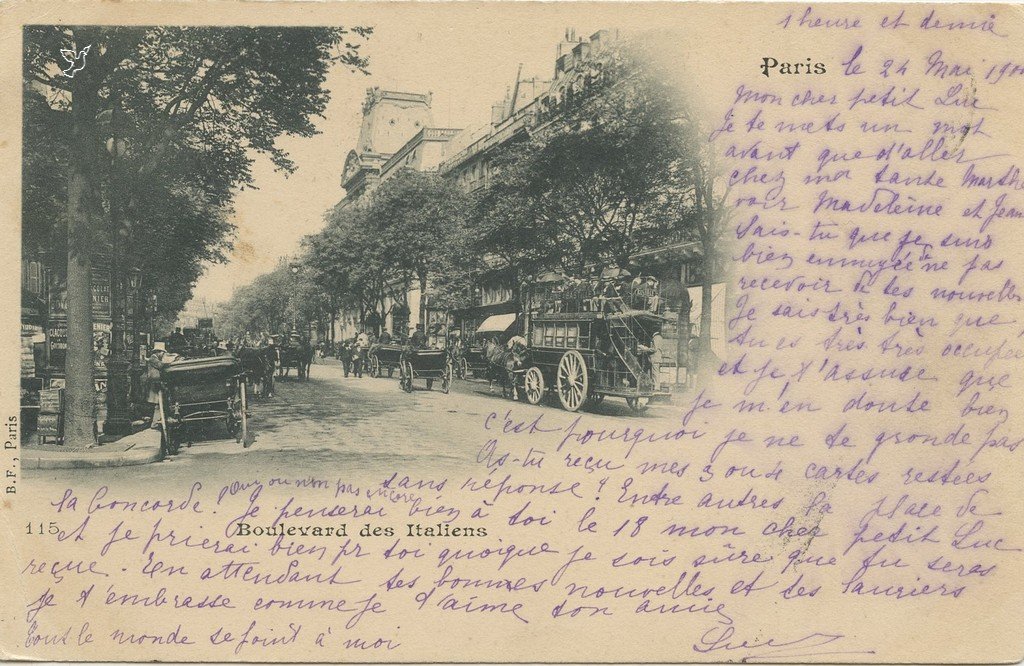 1 heure et demie
Paris le 24 Mai 190
Mon cher petit Luc
Je te mets un mot
avant que d'aller
chez ma tante Marthe
voir Madeleine et Jean
Sais-tu que je suis
bien ennuyée de ne pas
recevoir de tes nouvelles
Je sais très bien que
tu es très très occupée
et je t'assure que
je m'en doute bien
c'est pourquoi je ne te gronde pas
As-tu reçu mes 3 ou 4 cartes restées
sans réponse? Entre autres la place de
la Concorde? Oui ou non pas encore Je penserai bien à toi le 18 mon cher petit Luc
115 Boulevard des Italiens
et je prierai bien pr toi quoique je sois sûre que tu seras
reçue. En attendant tes bonnes nouvelles et tes lauriers
je t'embrasse comme je t'aime ton amie
Luc
Tout le monde se joint à moi
B.F., Paris